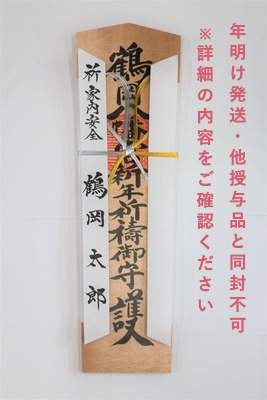 年明け発送・他授与品と同封不可
※詳細の内容をご確認ください
鶴岡八
新年祈祷御守護
祈家内安全
鶴岡太郎